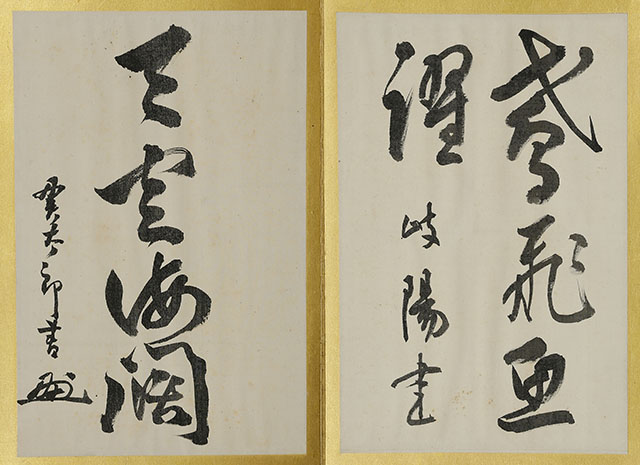 鳶飛魚
躍
岐陽書
天空海闊
癸太郎書